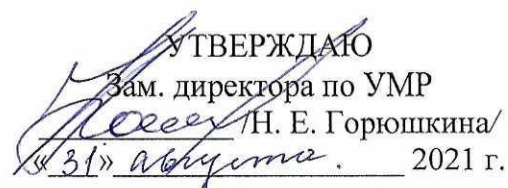 УТВЕРЖДАЮ
Зам. директора по УМР
/Н. Е. Горюшкина/
«31» августа. 2021 г.